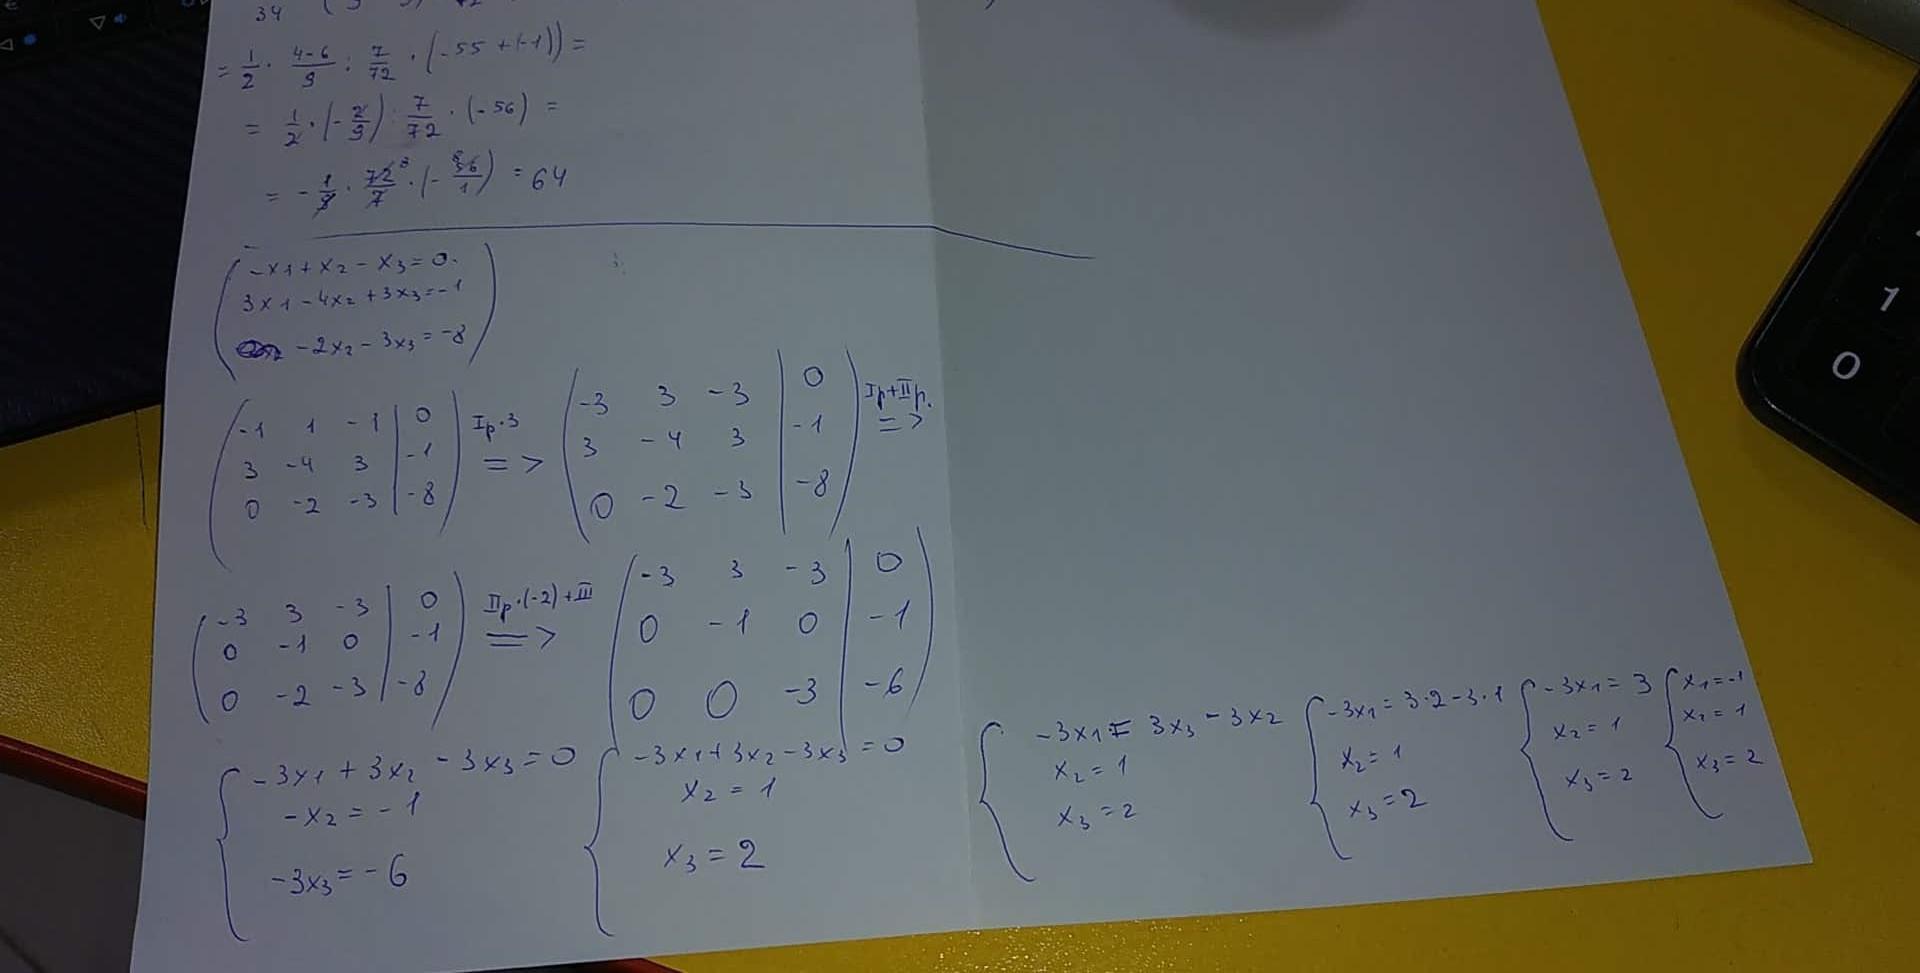 34
= 1/2 · (4-6)/9 : 7/72 · (-55 + (-1)) =
= 1/2 · (-2/9) : 7/72 · (-56) =
= -1/9 · 72⁸/7 · (-56⁸/1) = 64
-x1 + x2 - x3 = 0.
3x1 - 4x2 + 3x3 = -1
-2x2 - 3x3 = -8
-1 1 -1 | 0
3 -4 3 | -1
0 -2 -3 | -8
Ip·3
=>
-3 3 -3 | 0
3 -4 3 | -1
0 -2 -3 | -8
Ip+IIp.
=>
-3 3 -3 | 0
0 -1 0 | -1
0 -2 -3 | -8
IIp·(-2)+III
=>
-3 3 -3 | 0
0 -1 0 | -1
0 0 -3 | -6
-3x1 + 3x2 - 3x3 = 0
-x2 = -1
-3x3 = -6
-3x1 + 3x2 - 3x3 = 0
x2 = 1
x3 = 2
-3x1 = 3x3 - 3x2
x2 = 1
x3 = 2
-3x1 = 3·2 - 3·1
x2 = 1
x3 = 2
-3x1 = 3
x2 = 1
x3 = 2
x1 = -1
x2 = 1
x3 = 2
1
0